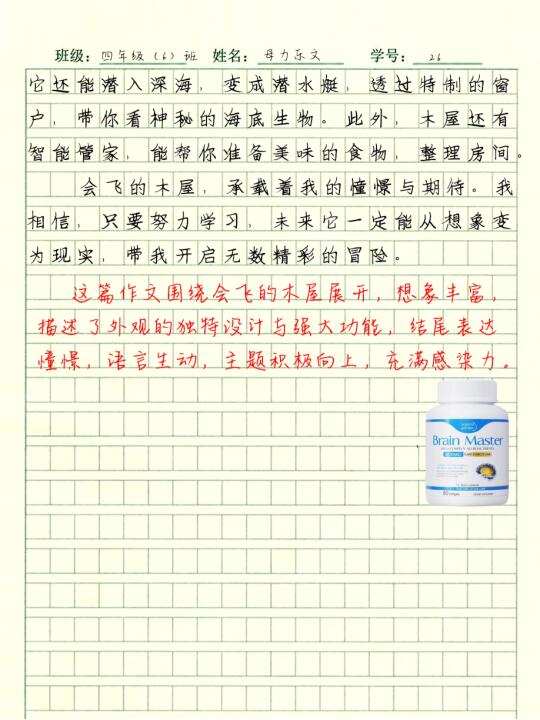 班级：四年级（6）班 姓名：母力乐文 学号：26
它还能潜入深海，变成潜水艇，透过特制的窗
户，带你看神秘的海底生物。此外，木屋还有
智能管家，能帮你准备美味的食物，整理房间。
会飞的木屋，承载着我的憧憬与期待。我
相信，只要努力学习，未来它一定能从想象变
为现实，带我开启无数精彩的冒险。
这篇作文围绕会飞的木屋展开，想象丰富，
描述了外观的独特设计与强大功能，结尾表达
憧憬，语言生动，主题积极向上，充满感染力。
Brain Master